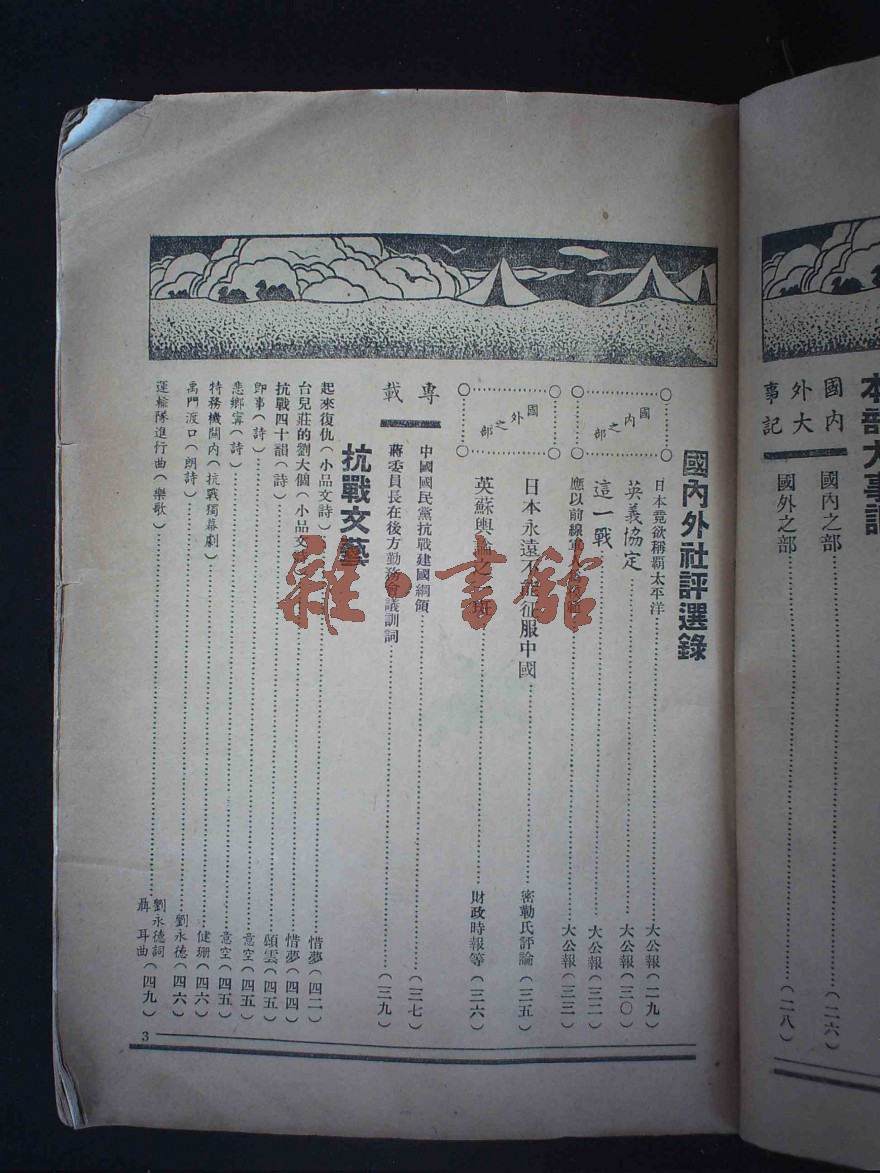 本部大事記
國內外大事記
國內之部……(二六)
國外之部……(二八)
國內外社評選錄
國內之部
日本竟欲稱霸太平洋……大公報(二九)
英義協定……大公報(三〇)
這一戰……大公報(三二)
應以前線軍人……大公報(三三)
國外之部
日本永遠不能征服中國……密勒氏評論(三五)
英蘇輿論之一斑……財政時報等(三六)
專載
中國國民黨抗戰建國綱領……(三七)
蔣委員長在後方勤務會議訓詞……(三九)
抗戰文藝
起來復仇(小品文詩)……惜夢(四二)
台兒莊的劉大個(小品文詩)……惜夢(四四)
抗戰四十韻(詩)……頌雲(四五)
即事(詩)……意空(四五)
悲鄉寗(詩)……意空(四五)
特務機關內(抗戰獨幕劇)……健珊(四六)
禹門渡口(朗詩)……劉永德(四六)
運輸隊進行曲(樂歌)……劉永德詞 聶耳曲(四九)
3
雜·書館